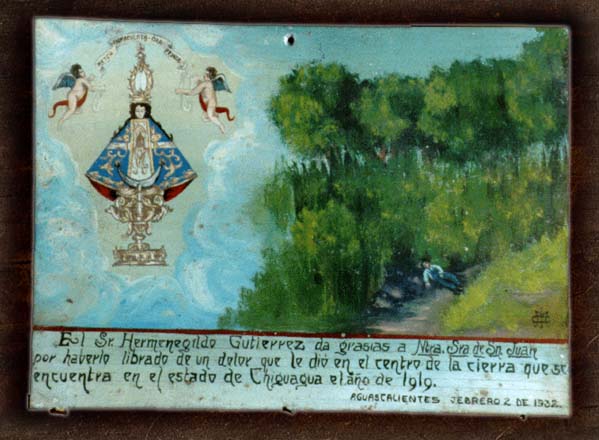 MATER INMACULATA ORA PRONOBIS
El Sr. Hermenegildo Gutierrez da grasias a Ntra. Sra de Sn. Juan
por haverlo librado de un dolor que le dió en el centro de la cierra que se
encuentra en el estado de Chiguagua el año de 1919.
AGUASCALIENTES JEBRERO 2 DE 1932.